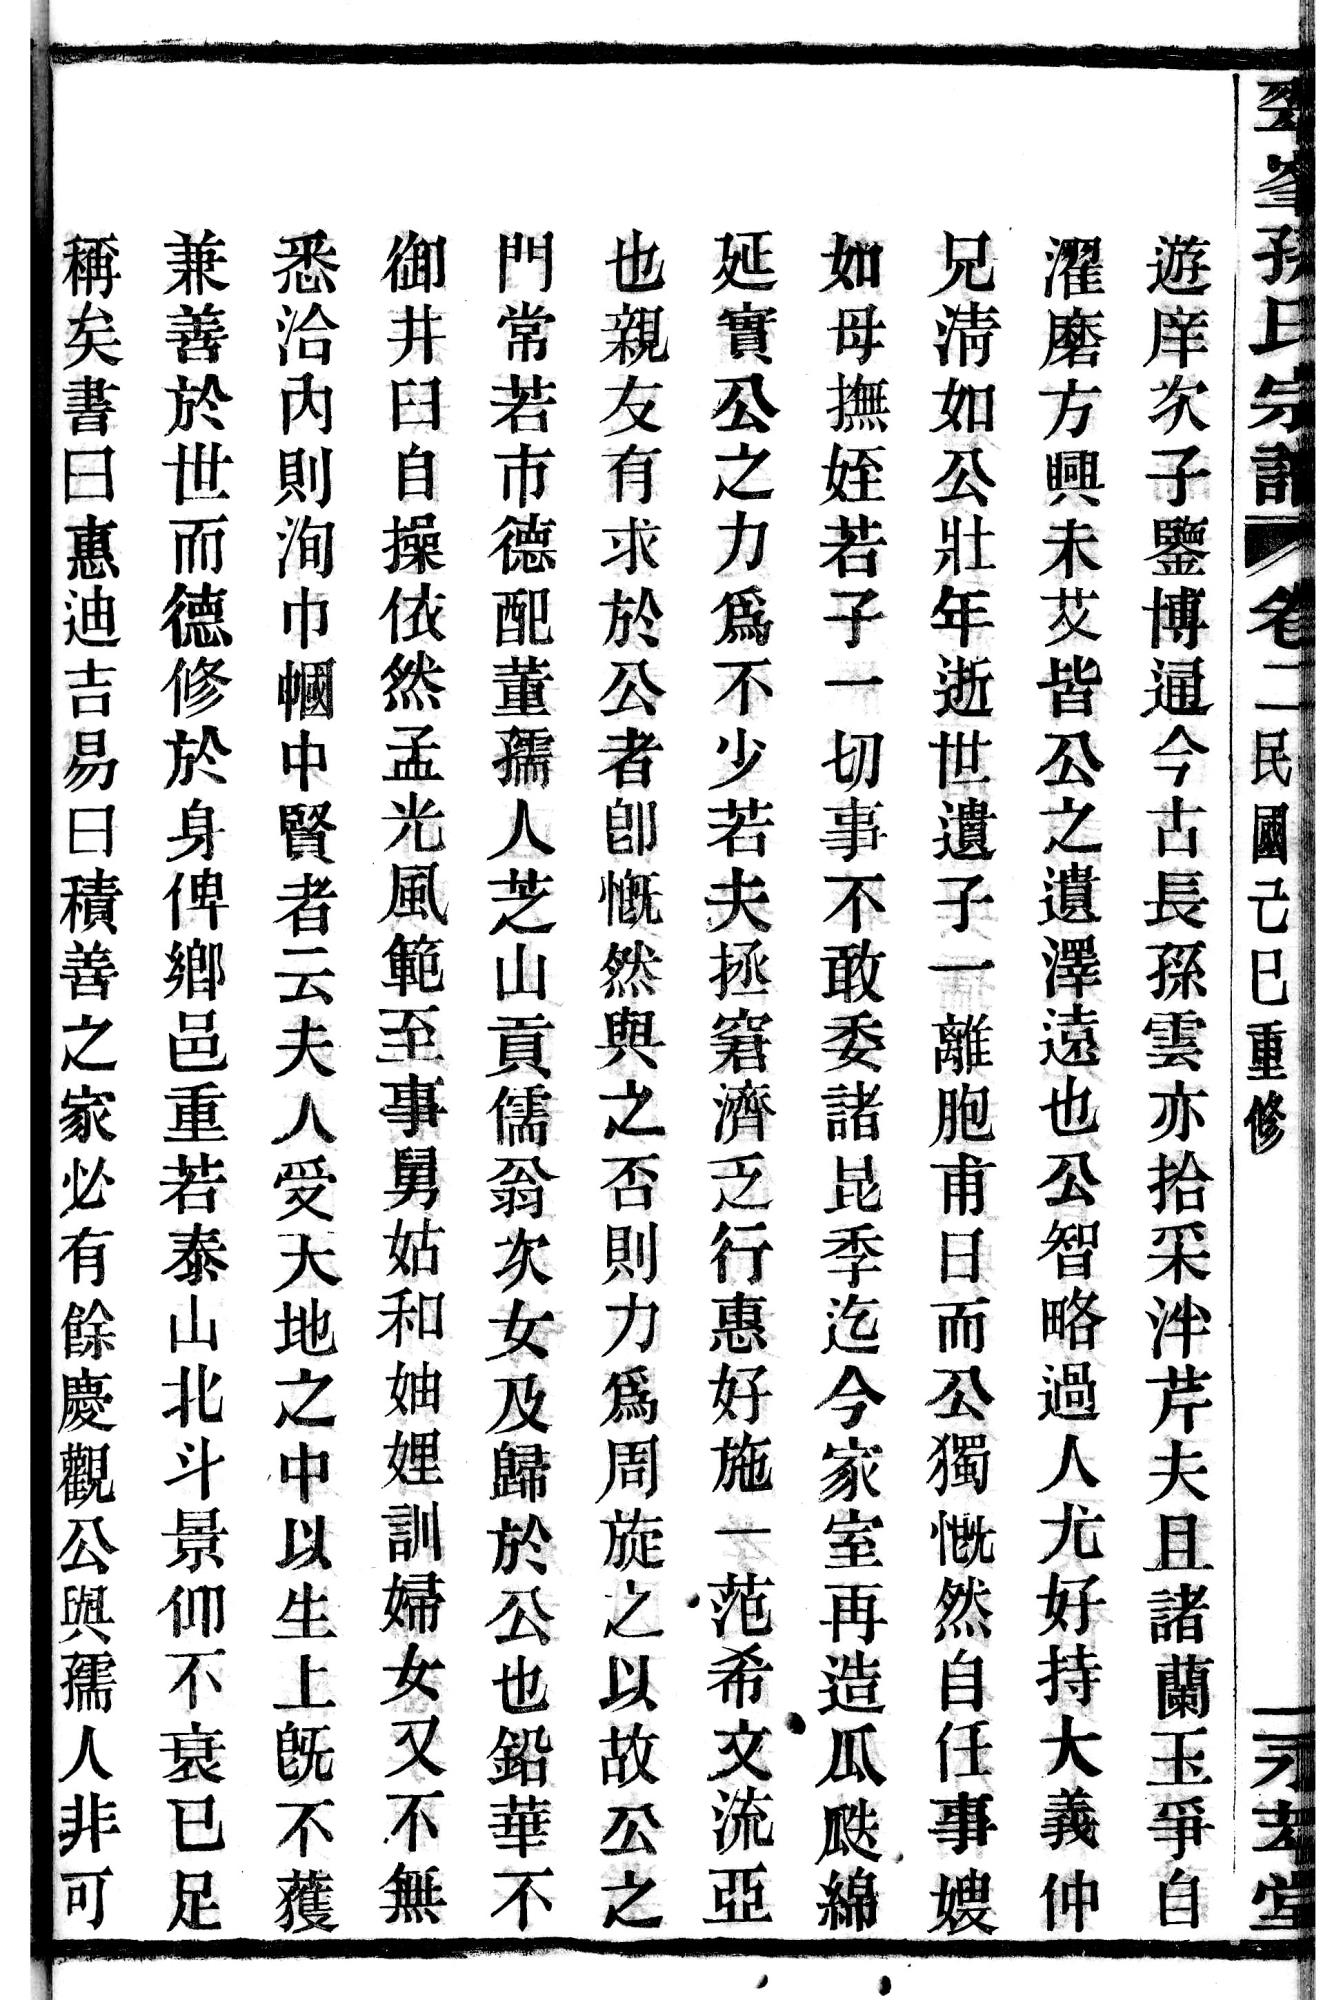 峯孫氏宗譜 卷二 民國己巳重修 永孝堂
遊庠次子鑒博通今古長孫雲亦拾采泮芹夫且諸蘭玉爭自
濯磨方興未艾皆公之遺澤遠也公智略過人尤好持大義仲
兄淸如公壯年逝世遺子一離胞甫日而公獨慨然自任事嫂
如母撫姪若子一切事不敢委諸昆季迄今家室再造瓜瓞綿
延實公之力爲不少若夫拯窘濟乏行惠好施一范希文流亞
也親友有求於公者卽慨然與之否則力爲周旋之以故公之
門常若市德配董孺人芝山貢儒翁次女及歸於公也鉛華不
御井臼自操依然孟光風範至事舅姑和妯娌訓婦女又不無
悉洽內則洵巾幗中賢者云夫人受大地之中以生上旣不獲
兼善於世而德修於身俾鄕邑重若泰山北斗景仰不衰已足
稱矣書曰惠迪吉易曰積善之家必有餘慶觀公與孺人非可